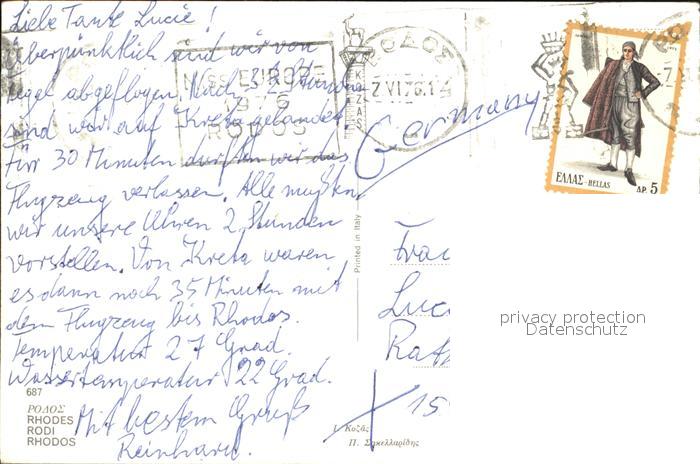 Liebe Tante Lucie!
Überpünktlich sind wir von
Tegel abgeflogen. Nach 3 Stunden
sind wir auf Kreta gelandet
Für 30 Minuten durften wir das
Flugzeug verlassen. Alle mußten
wir unsere Uhren 2 Stunden
vorstellen. Von Kreta waren
es dann noch 35 Minuten mit
dem Flugzeug bis Rhodos.
Temperatur 27 Grad.
Wassertemperatur 22 Grad.
Mit bestem Gruß
Reinhard.
687
ΡΟΔΟΣ
RHODES
RODI
RHODOS
MISS EUROPE
1976
RODOS
ΡΟΔΟΣ
7 VI 76.14
Germany
ΕΛΛΑΣ-HELLAS
ΔΡ. 5
Printed in Italy
Frau
Luci
Rat
privacy protection
Datenschutz
15
Ι. Κοζάς
Π. Σακελλαρίδης